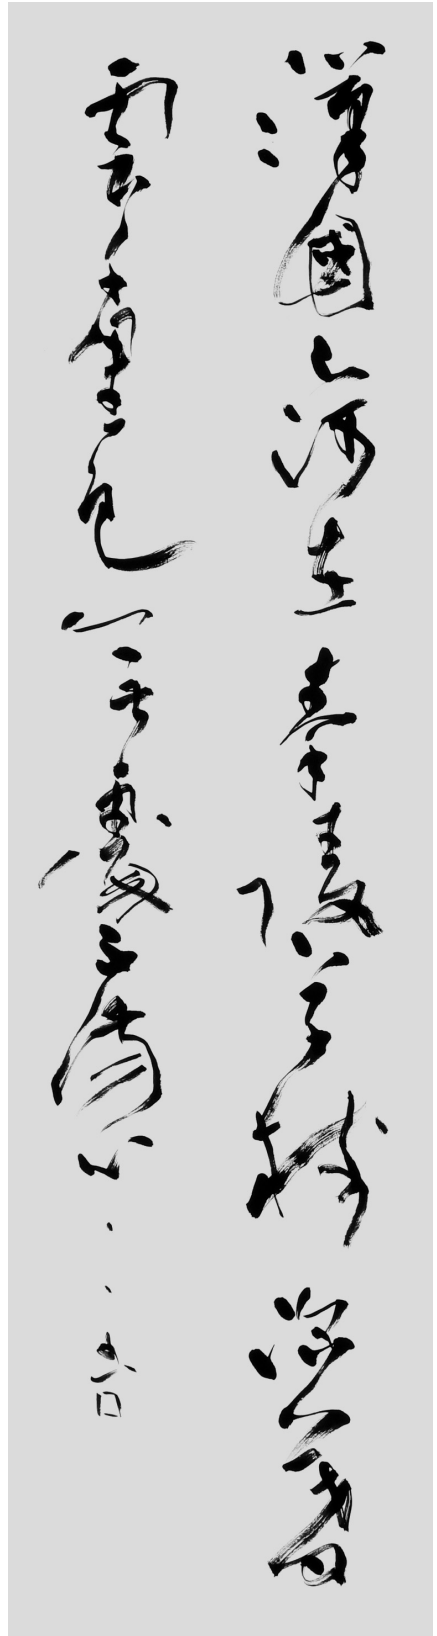 漢國山河在秦陵草樹深暮
雲千里色無處不傷心